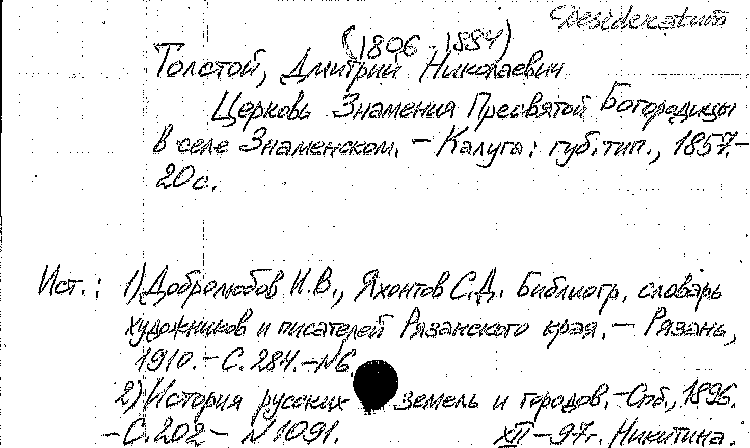 Desideratum
(1806-1884)
Толстой, Дмитрий Николаевич
Церковь Знамения Пресвятой Богородицы
в селе Знаменском. - Калуга: губ. тип., 1857.-
20 с.
Ист.: 1) Добролюбов И.В., Яхонтов С.Д. Библиогр. словарь
художников и писателей Рязанского края. - Рязань,
1910. - С. 284. - №6.
2) История русских земель и городов. - Спб., 1896.
- С. 202 - N 1091. XII - 97г. Никитина.